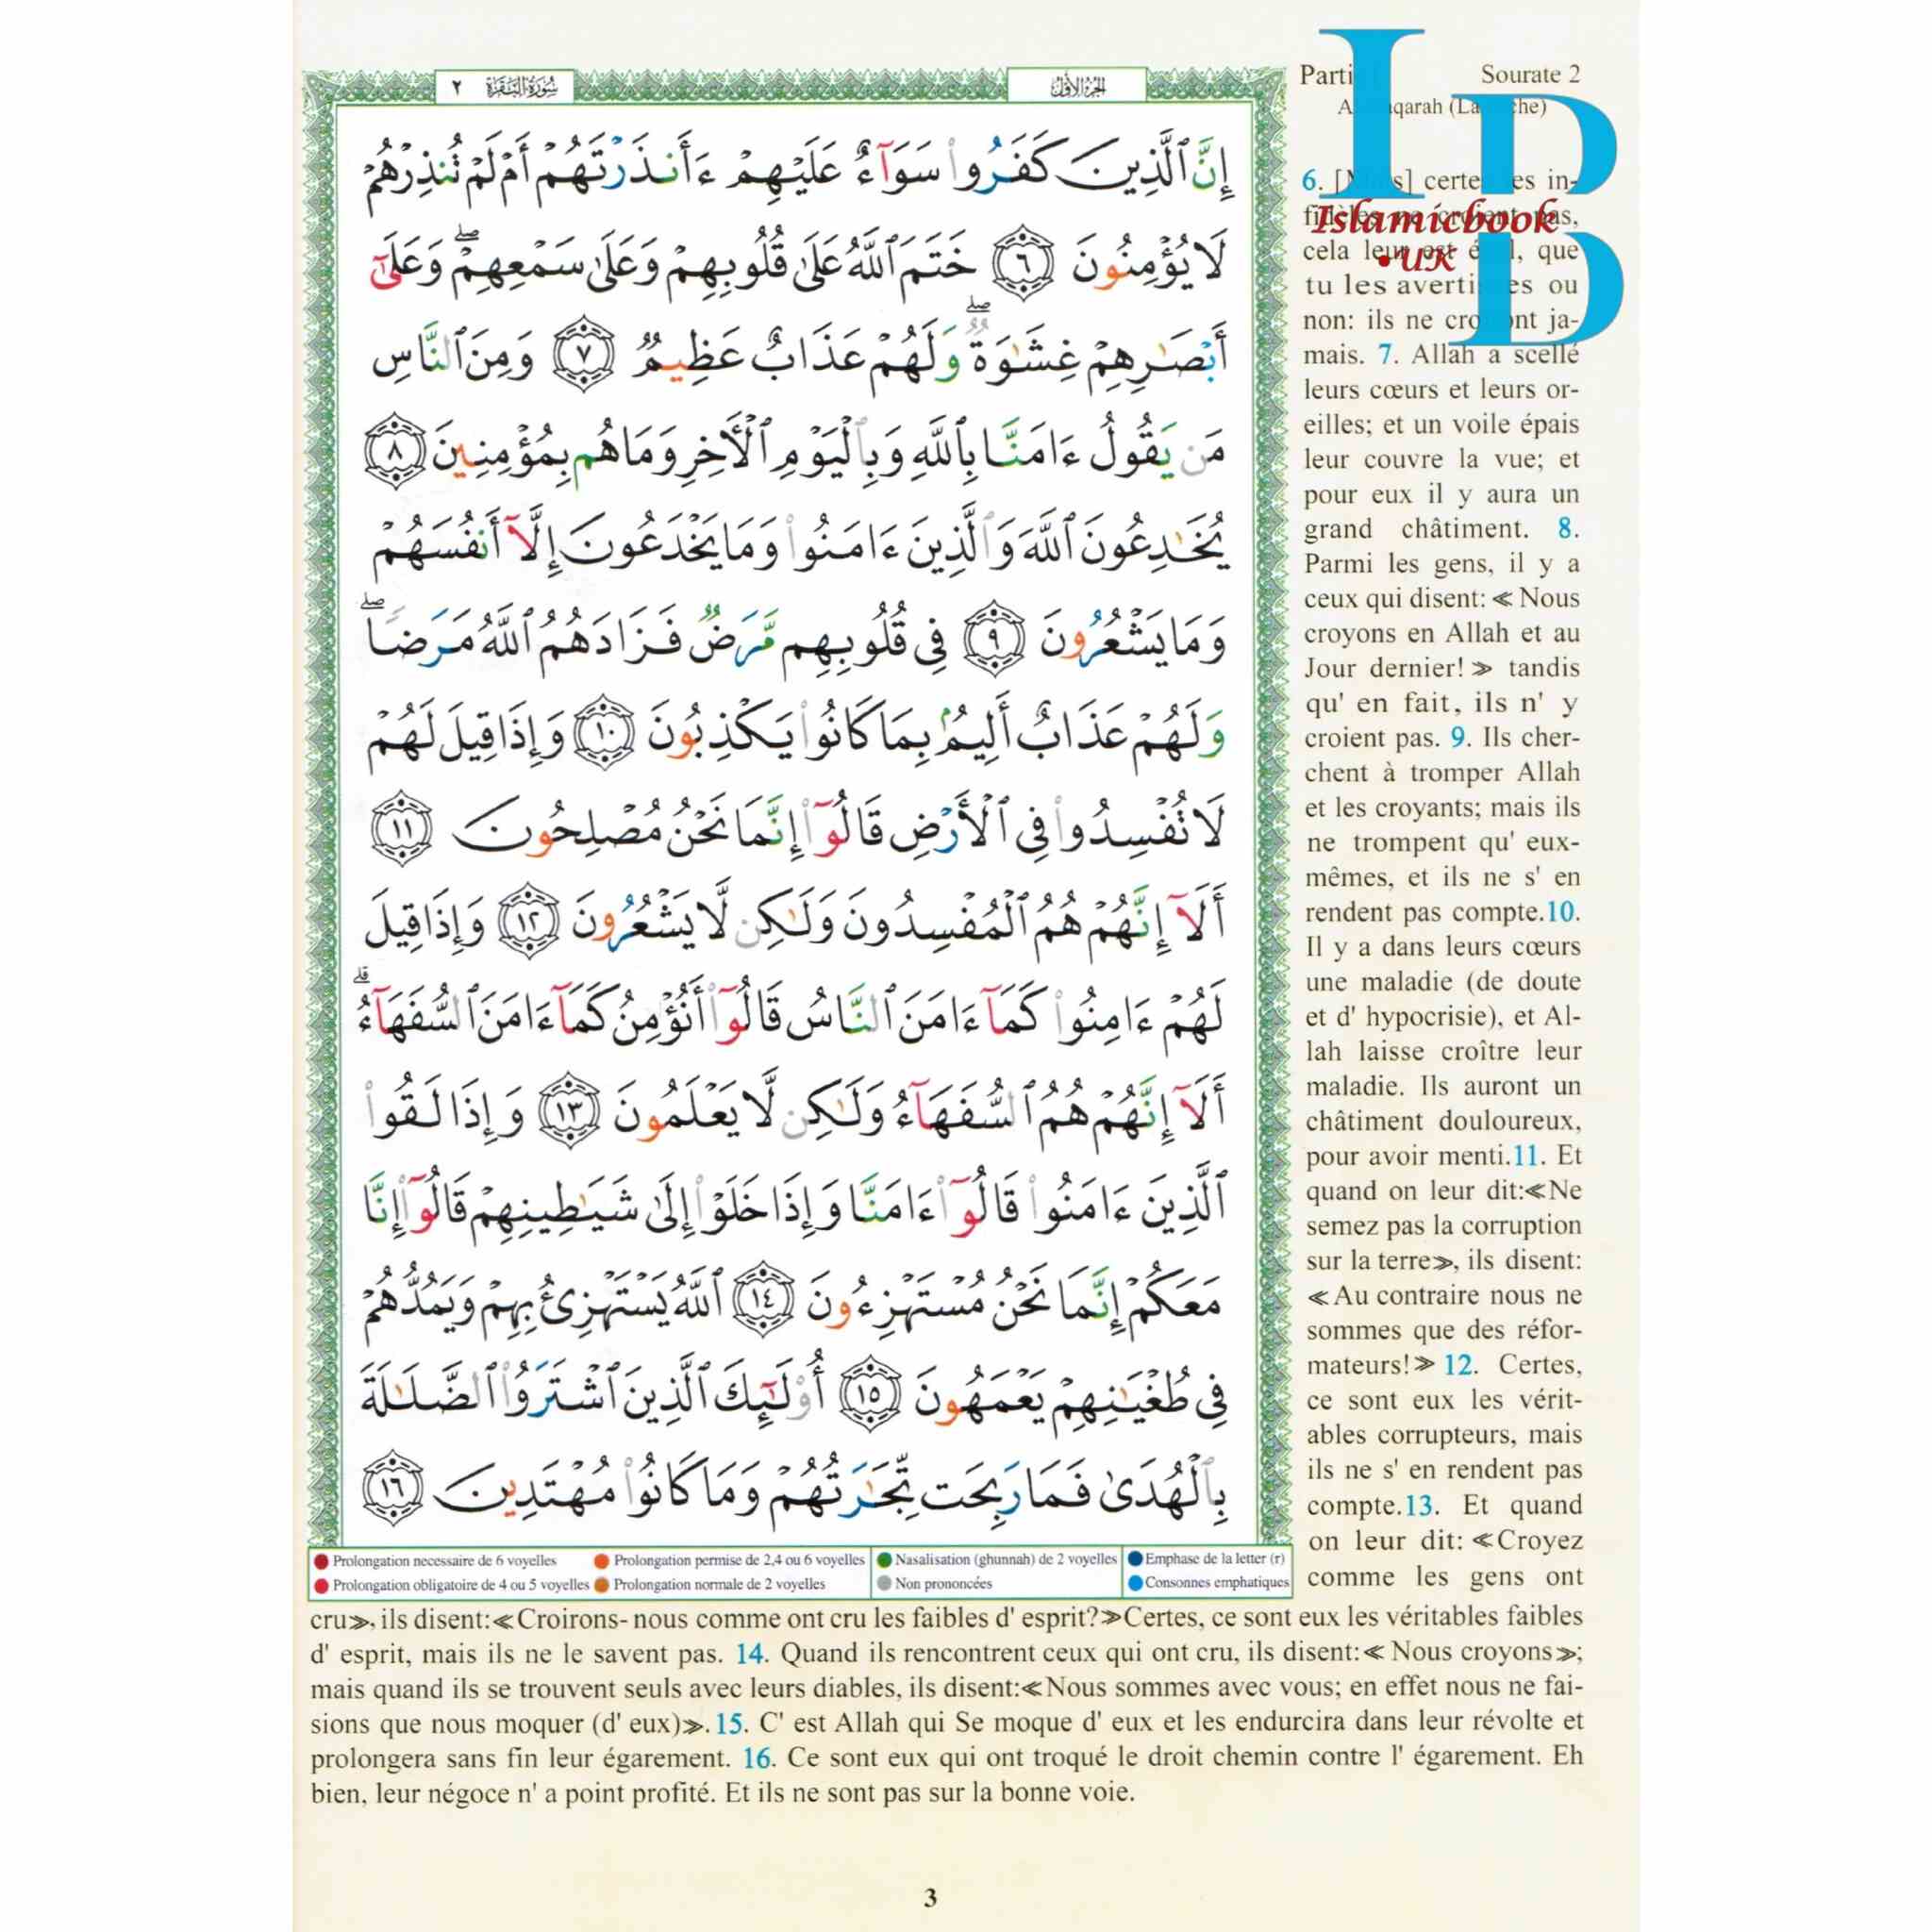 سُورَةُ البَقَرَةِ ٢
الجُزءُ الأوّلُ
إِنَّ ٱلَّذِينَ كَفَرُوا۟ سَوَآءٌ عَلَيْهِمْ ءَأَنذَرْتَهُمْ أَمْ لَمْ تُنذِرْهُمْ
لَا يُؤْمِنُونَ ٦ خَتَمَ ٱللَّهُ عَلَىٰ قُلُوبِهِمْ وَعَلَىٰ سَمْعِهِمْ ۖ وَعَلَىٰٓ
أَبْصَـٰرِهِمْ غِشَـٰوَةٌ ۖ وَلَهُمْ عَذَابٌ عَظِيمٌ ٧ وَمِنَ ٱلنَّاسِ
مَن يَقُولُ ءَامَنَّا بِٱللَّهِ وَبِٱلْيَوْمِ ٱلْـَٔاخِرِ وَمَا هُم بِمُؤْمِنِينَ ٨
يُخَـٰدِعُونَ ٱللَّهَ وَٱلَّذِينَ ءَامَنُوا۟ وَمَا يَخْدَعُونَ إِلَّآ أَنفُسَهُمْ
وَمَا يَشْعُرُونَ ٩ فِى قُلُوبِهِم مَّرَضٌ فَزَادَهُمُ ٱللَّهُ مَرَضًا ۖ
وَلَهُمْ عَذَابٌ أَلِيمٌۢ بِمَا كَانُوا۟ يَكْذِبُونَ ١٠ وَإِذَا قِيلَ لَهُمْ
لَا تُفْسِدُوا۟ فِى ٱلْأَرْضِ قَالُوٓا۟ إِنَّمَا نَحْنُ مُصْلِحُونَ ١١
أَلَآ إِنَّهُمْ هُمُ ٱلْمُفْسِدُونَ وَلَـٰكِن لَّا يَشْعُرُونَ ١٢ وَإِذَا قِيلَ
لَهُمْ ءَامِنُوا۟ كَمَآ ءَامَنَ ٱلنَّاسُ قَالُوٓا۟ أَنُؤْمِنُ كَمَآ ءَامَنَ ٱلسُّفَهَآءُ ۗ
أَلَآ إِنَّهُمْ هُمُ ٱلسُّفَهَآءُ وَلَـٰكِن لَّا يَعْلَمُونَ ١٣ وَإِذَا لَقُوا۟
ٱلَّذِينَ ءَامَنُوا۟ قَالُوٓا۟ ءَامَنَّا وَإِذَا خَلَوْا۟ إِلَىٰ شَيَـٰطِينِهِمْ قَالُوٓا۟ إِنَّا
مَعَكُمْ إِنَّمَا نَحْنُ مُسْتَهْزِءُونَ ١٤ ٱللَّهُ يَسْتَهْزِئُ بِهِمْ وَيَمُدُّهُمْ
فِى طُغْيَـٰنِهِمْ يَعْمَهُونَ ١٥ أُو۟لَـٰٓئِكَ ٱلَّذِينَ ٱشْتَرَوُا۟ ٱلضَّلَـٰلَةَ
بِٱلْهُدَىٰ فَمَا رَبِحَت تِّجَـٰرَتُهُمْ وَمَا كَانُوا۟ مُهْتَدِينَ ١٦
Prolongation necessaire de 6 voyelles
Prolongation obligatoire de 4 ou 5 voyelles
Prolongation permise de 2,4 ou 6 voyelles
Prolongation normale de 2 voyelles
Nasalisation (ghunnah) de 2 voyelles
Non prononcées
Emphase de la letter (r)
Consonnes emphatiques
IBB
Islamicbook
.UK
Sourate 2
6. certes les in-
fidèles ne croient pas,
cela leur est que
tu les avertisses ou
non: ils ne croiront ja-
mais. 7. Allah a scellé
leurs cœurs et leurs or-
eilles; et un voile épais
leur couvre la vue; et
pour eux il y aura un
grand châtiment. 8.
Parmi les gens, il y a
ceux qui disent: ≪ Nous
croyons en Allah et au
Jour dernier! ≫ tandis
qu' en fait, ils n' y
croient pas. 9. Ils cher-
chent à tromper Allah
et les croyants; mais ils
ne trompent qu' eux-
mêmes, et ils ne s' en
rendent pas compte.10.
Il y a dans leurs cœurs
une maladie (de doute
et d' hypocrisie), et Al-
lah laisse croître leur
maladie. Ils auront un
châtiment douloureux,
pour avoir menti.11. Et
quand on leur dit:≪Ne
semez pas la corruption
sur la terre≫, ils disent:
≪Au contraire nous ne
sommes que des réfor-
mateurs!≫ 12. Certes,
ce sont eux les vérit-
ables corrupteurs, mais
ils ne s' en rendent pas
compte.13. Et quand
on leur dit: ≪Croyez
comme les gens ont
cru≫, ils disent:≪Croirons- nous comme ont cru les faibles d' esprit?≫Certes, ce sont eux les véritables faibles
d' esprit, mais ils ne le savent pas. 14. Quand ils rencontrent ceux qui ont cru, ils disent:≪ Nous croyons≫;
mais quand ils se trouvent seuls avec leurs diables, ils disent:≪Nous sommes avec vous; en effet nous ne fai-
sions que nous moquer (d' eux)≫.15. C' est Allah qui Se moque d' eux et les endurcira dans leur révolte et
prolongera sans fin leur égarement. 16. Ce sont eux qui ont troqué le droit chemin contre l' égarement. Eh
bien, leur négoce n' a point profité. Et ils ne sont pas sur la bonne voie.
3